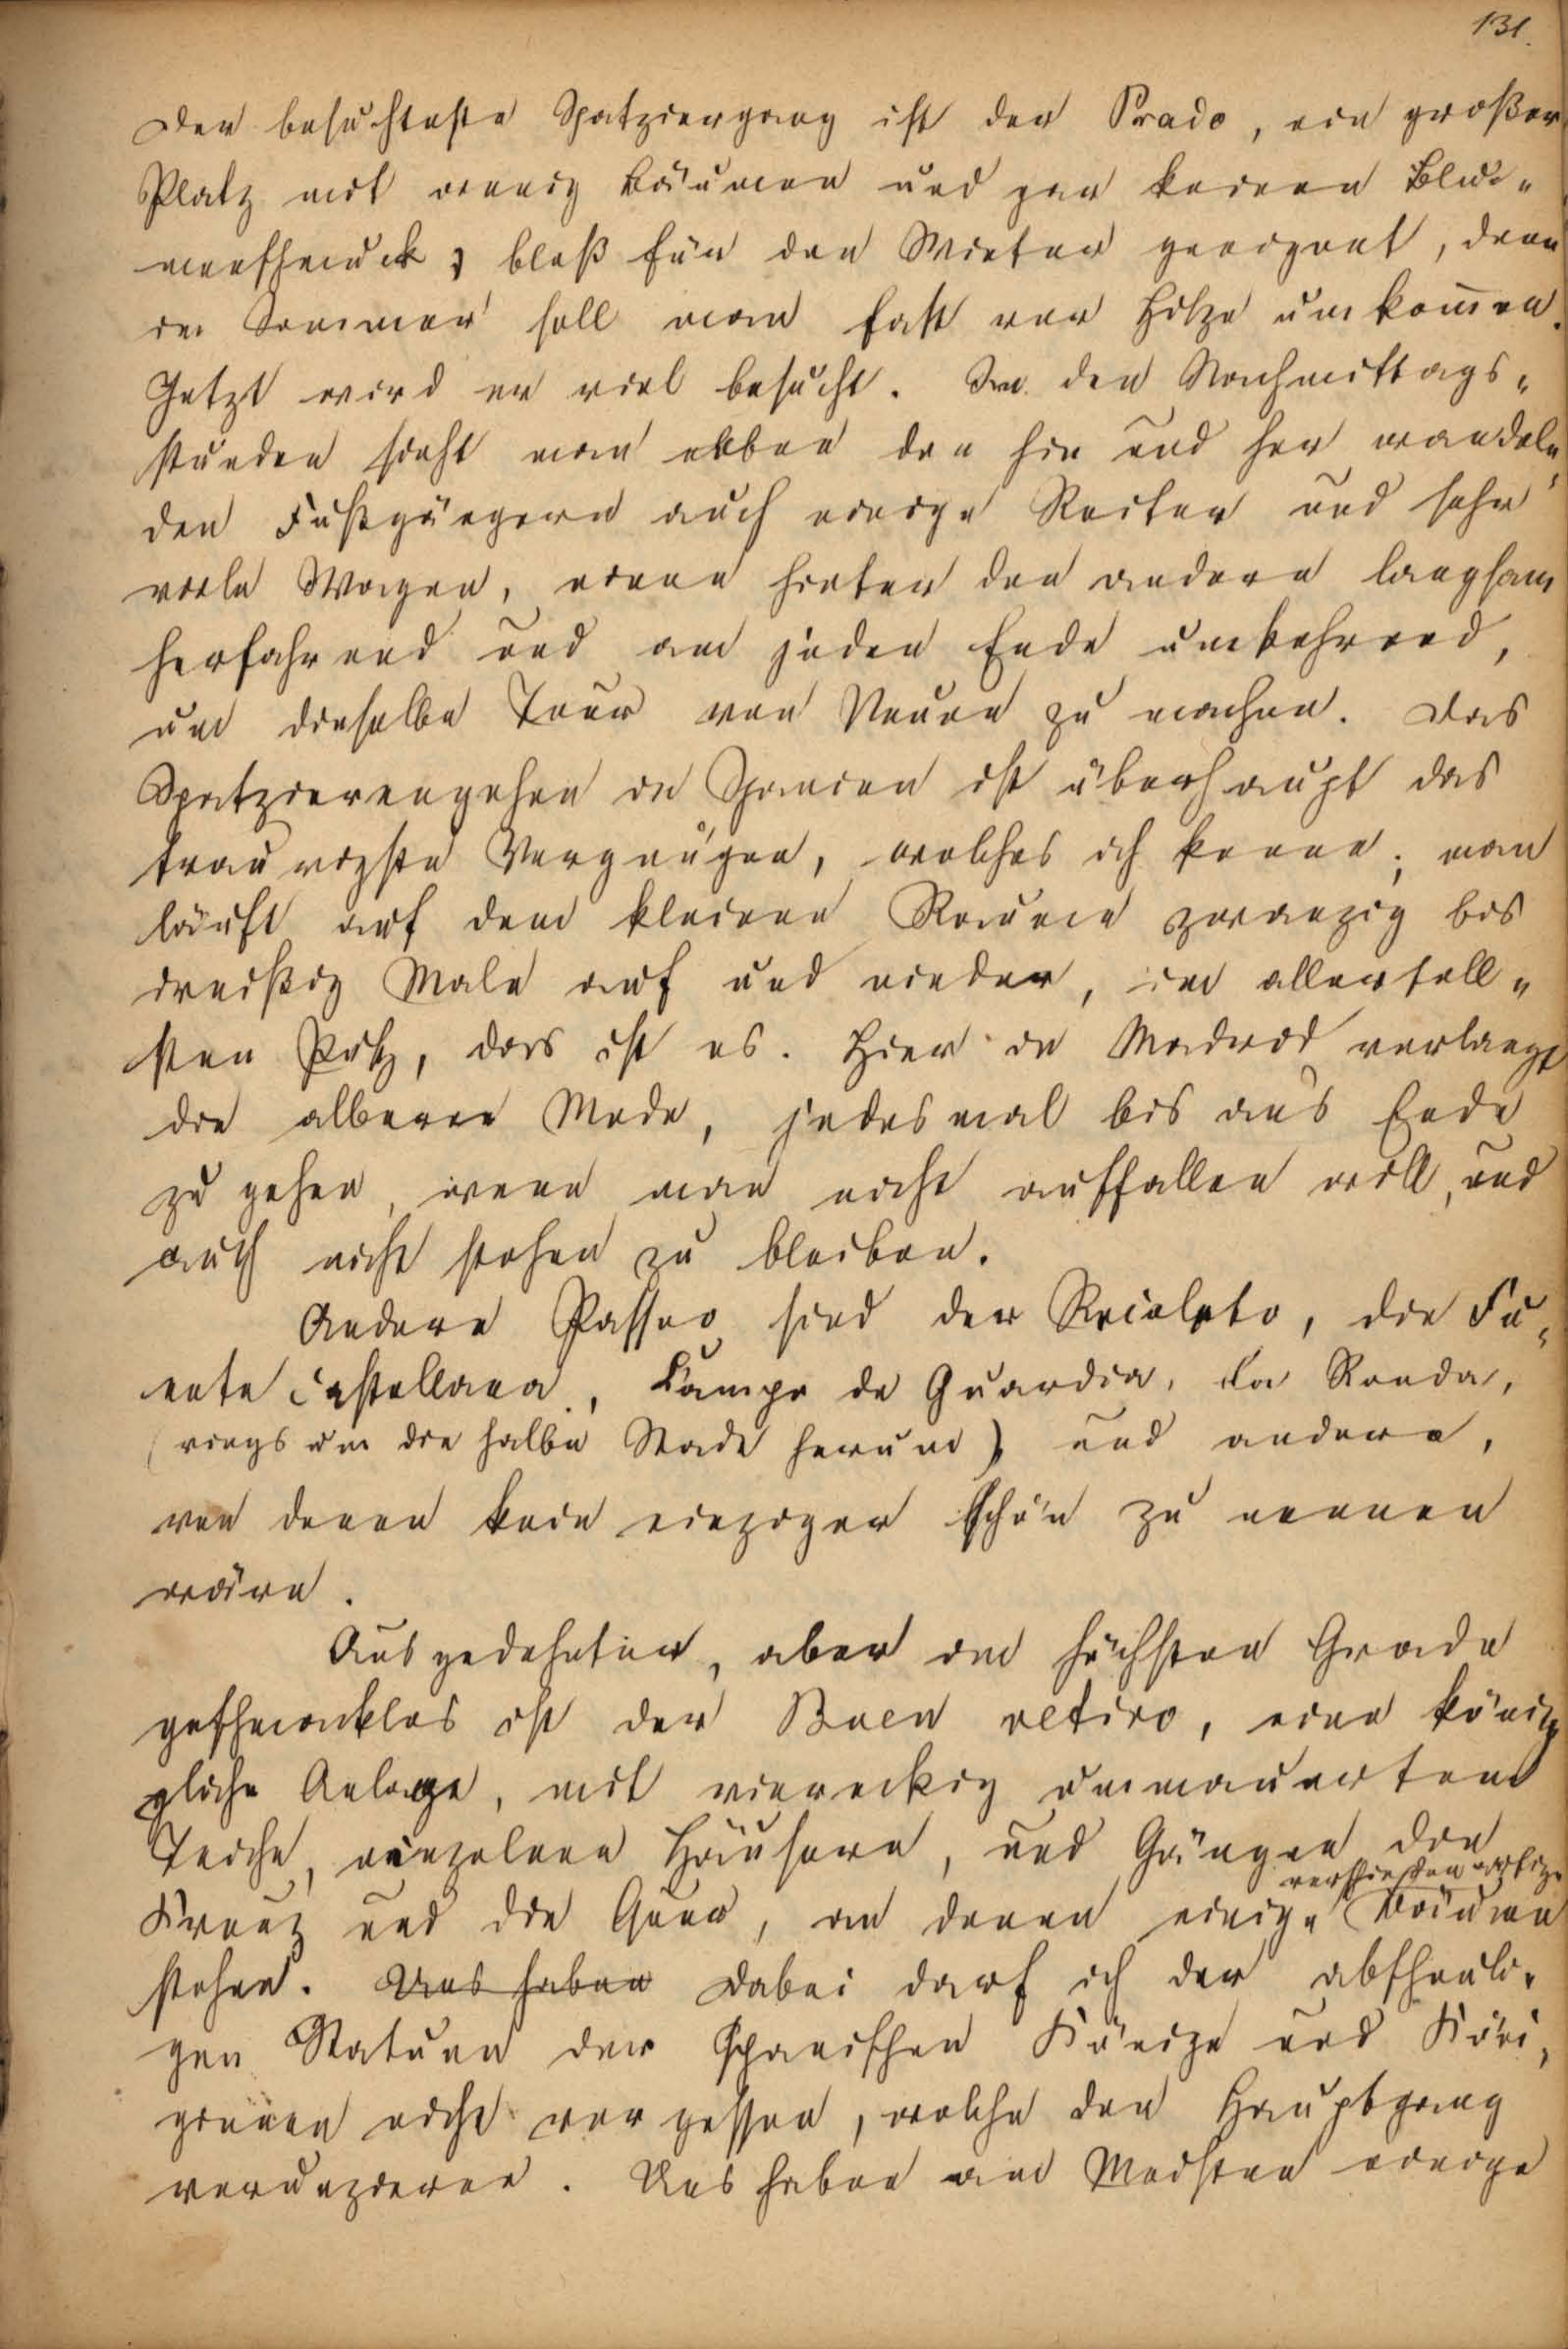 131.
Der besuchteste Spatziergang ist der Prado, ein großer
Platz mit wenig Bäumen und gar keinen Blu-
menschmuck, bloß für den Winter geeignet, denn
im Sommer soll man fast vor Hitze umkom̄en.
Jetzt wird er viel besucht. In den Nachmittags-
stunden sieht man neben den hin und her wandeln-
den Fußgängern auch einige Reiter und sehr
viele Wagen, einen hinter den andern langsam
herfahrend und am jeden Ende umkehrend,
um dieselbe Tour von Neuen zu machen. Das
Spatzierengehen in Spanien ist überhaupt das
traurigste Vergnügen, welches ich kenne; man
läuft auf dem kleinen Raume zwanzig bis
dreißig Male auf und nieder, im allertoll-
sten Putz, das ist es. Hier in Madrid verlangt
die alberne Mode, jedesmal bis ans Ende
zu gehen, wenn man nicht auffallen will, und
auch nicht stehen zu bleiben.
Andere Passeo sind der Recoleto, die Fu-
ente Castellana, Campo de Guardia, La Ronda,
(rings um die halbe Stadt herum) und andere,
von denen kein einziger schön zu nennen
wäre.
Ausgedehnter, aber im höchsten Grade
geschmacklos ist der Buen retiro, eine köni-
gliche Anlage, mit viereckig ummauerten
Teiche, einzelnen Häusern, und Gängen die
Kreuz und die Quer, an denen einige Bäume
stehen. Uns haben Dabei darf ich der abscheuli-
gen Statuen der spanischen Könige und Köni-
ginnen nicht vergessen, welche den Hauptgang
verunzieren. Uns haben am Meisten einige